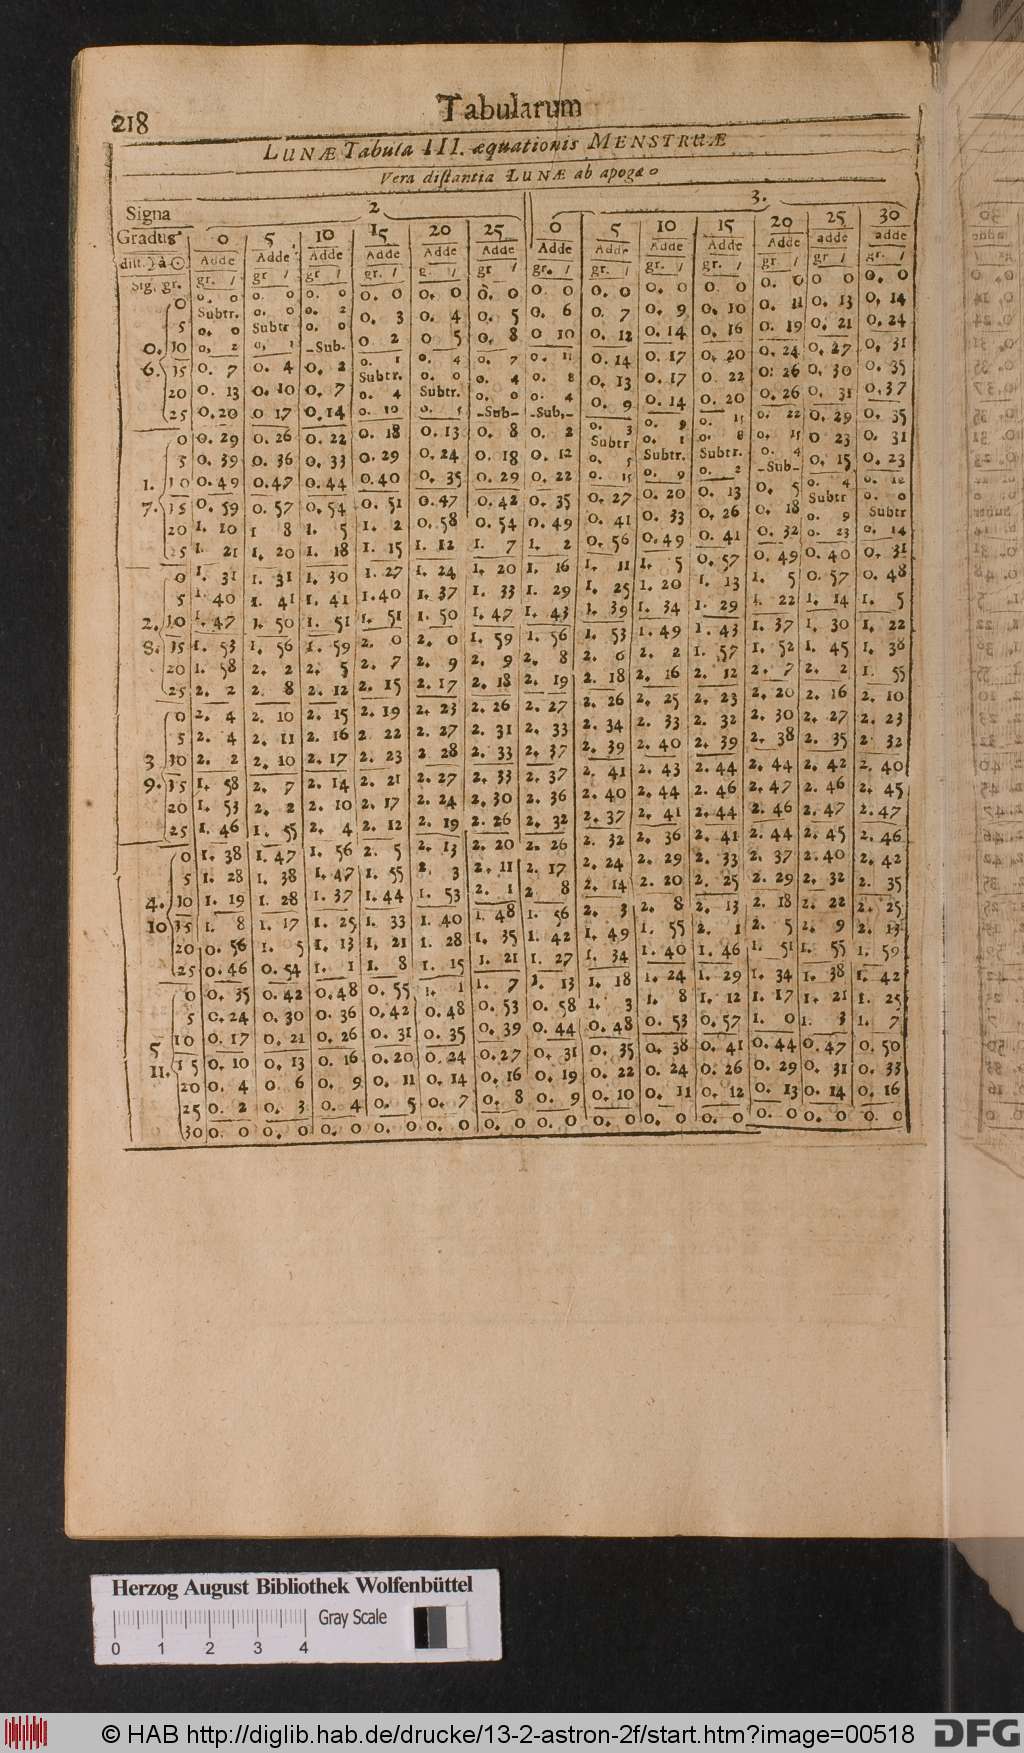 218
Tabularum
LUNÆ Tabula III. æquationis MENSTRUÆ
Vera distantia LUNÆ ab apogæo
Signa 2 3.
Gradus 0 5 10 15 20 25 0 5 10 15 20 25 30
Adde Adde Adde Adde Adde Adde Adde Adde Adde Adde Adde adde adde
Sig. gr. gr. / gr / gr / gr. / g. / gr / gr. / gr. / gr. / gr. / gr / gr / gr. /
0 0. 0 0. 0 0. 0 0. 0 0. 0 0. 0 0. 0 0. 0 0. 0 0. 0 0. 0 0. 0 0. 0
Subtr. 0. 0 0. 2 0. 3 0. 4 0. 5 0. 6 0. 7 0. 9 0. 10 0. 11 0. 13 0. 14
5 0. 0 Subtr 0. 0 0. 2 0 5 0. 8 0 10 0. 12 0. 14 0. 16 0. 19 0. 21 0. 24
0. 10 0. 2 0. 1 -Sub- 0. 1 0. 4 0. 7 0. 11 0. 14 0. 17 0. 20 0. 24 0. 27 0. 31
6. 15 0. 7 0. 4 0. 2 Subtr. 0. 0 0. 4 0. 8 0. 13 0. 17 0. 22 0. 26 0. 30 0. 35
20 0. 13 0. 10 0. 7 0. 4 Subtr. 0. 0 0. 4 0. 9 0. 14 0. 20 0. 26 0. 31 0. 37
25 0. 20 0 17 0. 14 0. 10 0. 5 -Sub- -Sub,- 0. 3 0. 9 0. 15 0. 22 0. 29 0. 35
0 0. 29 0. 26 0. 22 0. 18 0. 13 0. 8 0. 2 Subtr 0. 1 0. 8 0. 15 0 23 0. 31
5 0. 39 0. 36 0. 33 0. 29 0. 24 0. 18 0. 12 0. 5 Subtr. Subtr. 0. 4 0. 15 0. 23
1. 10 0. 49 0. 47 0. 44 0. 40 0. 35 0. 29 0. 22 0. 15 0. 9 0. 2 -Sub- 0. 4 0. 12
7. 15 0. 59 0. 57 0. 54 0. 51 0. 47 0. 42 0. 35 0. 27 0. 20 0. 13 0. 5 Subtr 0. 0
Subtr
20 1. 10 1 8 1. 5 1. 2 0. 58 0. 54 0. 49 0. 41 0. 33 0. 26 0. 18 0. 9
25 1. 21 1. 20 1. 18 1. 15 1. 12 1. 7 1. 2 0. 56 0. 49 0. 41 0. 32 0. 23 0. 14
0 1. 31 1. 31 1. 30 1. 27 1. 24 1. 20 1. 16 1. 11 1. 5 0. 57 0. 49 0. 40 0. 31
5 1. 40 1. 41 1. 41 1. 40 1. 37 1. 33 1. 29 1. 25 1. 20 1. 13 1. 5 0. 57 0. 48
2. 10 1. 47 1. 50 1. 51 1. 51 1. 50 1. 47 1. 43 1. 39 1. 34 1. 29 1. 22 1. 14 1. 5
8. 15 1. 53 1. 56 1. 59 2. 0 2. 0 1. 59 1. 56 1. 53 1. 49 1. 43 1. 37 1. 30 1. 22
20 1. 58 2. 2 2. 5 2. 7 2. 9 2. 9 2. 8 2. 6 2. 2 1. 57 1. 52 1. 45 1. 38
25 2. 2 2. 8 2. 12 2. 15 2. 17 2. 18 2. 19 2. 18 2. 16 2. 12 2. 7 2. 2 1. 55
0 2. 4 2. 10 2. 15 2. 19 2. 23 2. 26 2. 27 2. 26 2. 25 2. 23 2. 20 2. 16 2. 10
5 2. 4 2. 11 2. 16 2 22 2. 27 2. 31 2. 33 2. 34 2. 33 2. 32 2. 30 2. 27 2. 23
3 10 2. 2 2. 10 2. 17 2. 23 2 28 2. 33 2. 37 2. 39 2. 40 2. 39 2. 38 2. 35 2 32
9. 15 1. 58 2. 7 2. 14 2. 21 2. 27 2. 33 2. 37 2. 41 2. 43 2. 44 2. 44 2. 42 2. 40
20 1. 53 2. 2 2. 10 2. 17 2. 24 2. 30 2. 36 2. 40 2. 44 2. 46 2. 47 2. 46 2. 45
25 1. 46 1. 55 2. 4 2. 12 2. 19 2. 26 2. 32 2. 37 2. 41 2. 44 2. 46 2. 47 2. 47
0 1. 38 1. 47 1. 56 2. 5 2. 13 2. 20 2. 26 2. 32 2. 36 2. 41 2. 44 2. 45 2. 46
5 1. 28 1. 38 1. 47 1. 55 2. 3 2. 11 2. 17 2. 24 2. 29 2. 33 2. 37 2. 40 2. 42
4. 10 1. 19 1. 28 1. 37 1. 44 1. 53 2. 1 2 8 2. 14 2. 20 2. 25 2. 29 2. 32 2. 35
10 15 1. 8 1. 17 1. 25 1. 33 1. 40 1. 48 1. 56 2. 3 2. 8 2. 13 2. 18 2. 22 2. 25
20 0. 56 1. 5 1. 13 1. 21 1. 28 1. 35 1. 42 1. 49 1. 55 2. 1 2. 5 2. 9 2. 13
25 0. 46 0. 54 1. 1 1. 8 1. 15 1. 21 1. 27 1. 34 1. 40 1. 46 1. 51 1. 55 1. 59
0 0. 35 0. 42 0. 48 0. 55 1. 1 1. 7 1. 13 1. 18 1. 24 1. 29 1. 34 1. 38 1. 42
5 0. 24 0. 30 0. 36 0. 42 0. 48 0. 53 0. 58 1. 3 1. 8 1. 12 1. 17 1. 21 1. 25
5 10 0. 17 0. 21 0. 26 0. 31 0. 35 0. 39 0. 44 0. 48 0. 53 0. 57 1. 0 1. 3 1. 7
11. 15 0. 10 0. 13 0. 16 0. 20 0. 24 0. 27 0. 31 0. 35 0. 38 0. 41 0. 44 0. 47 0. 50
20 0. 4 0. 6 0. 9 0. 11 0. 14 0. 16 0. 19 0. 22 0. 24 0. 26 0. 29 0. 31 0. 33
25 0. 2 0. 3 0. 4 0. 5 0. 7 0. 8 0. 9 0. 10 0. 11 0. 12 0. 13 0. 14 0. 16
30 0. 0 0. 0 0. 0 0. 0 0. 0 0. 0 0. 0 0. 0 0. 0 0. 0 0. 0 0. 0 0. 0
Herzog August Bibliothek Wolfenbüttel
Gray Scale
0 1 2 3 4
© HAB http://diglib.hab.de/drucke/13-2-astron-2f/start.htm?image=00518 DFG